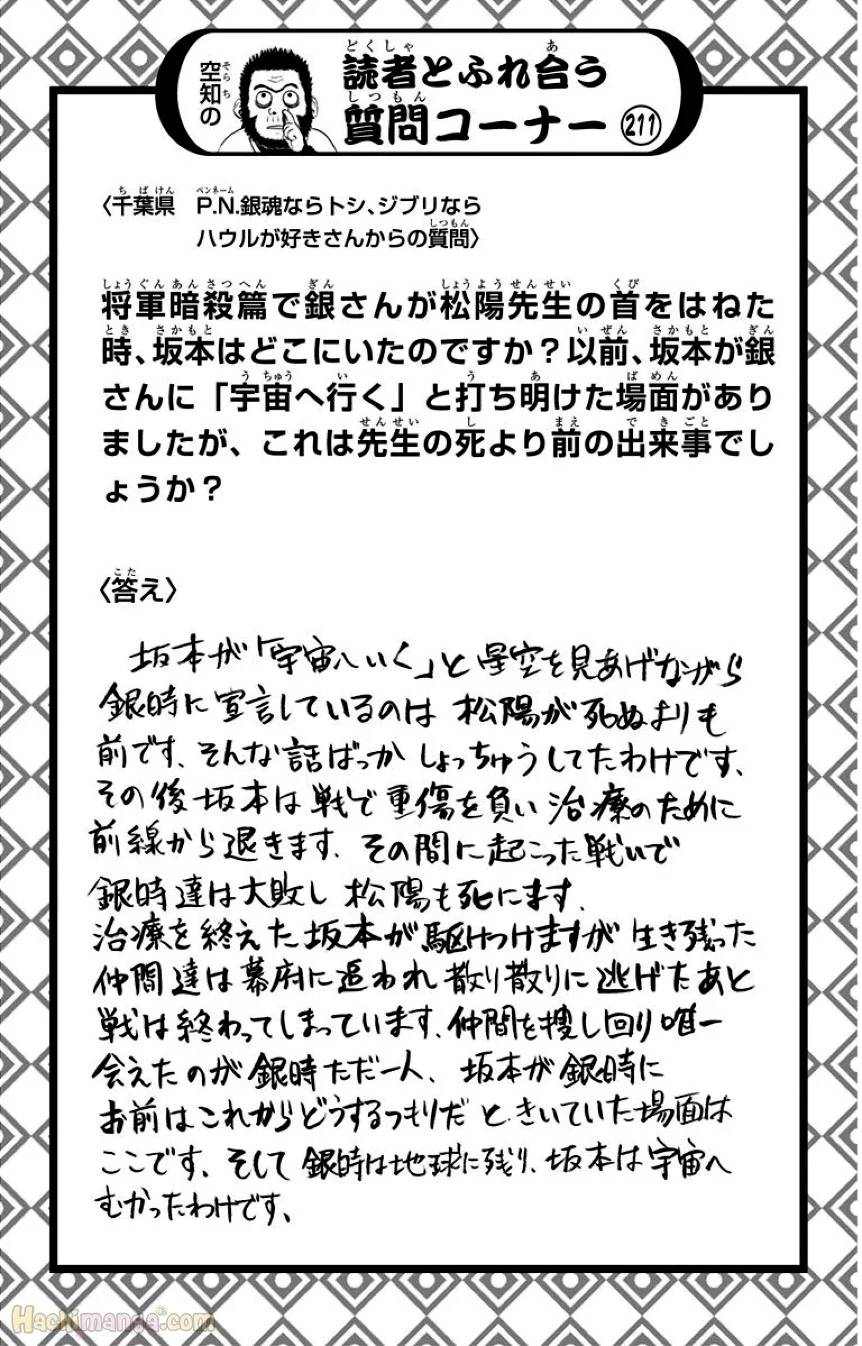 空知の
読者とふれ合う
質問コーナー 211
〈千葉県 P.N.銀魂ならトシ、ジブリなら
ハウルが好きさんからの質問〉
将軍暗殺篇で銀さんが松陽先生の首をはねた
時、坂本はどこにいたのですか？以前、坂本が銀
さんに「宇宙へ行く」と打ち明けた場面があり
ましたが、これは先生の死より前の出来事でし
ょうか？
〈答え〉
坂本が「宇宙へいく」と星空を見あげながら
銀時に宣言しているのは 松陽が死ぬよりも
前です、そんな話ばっか しょっちゅうしてたわけです、
その後坂本は戦で重傷を負い 治療のために
前線から退きます、その間に起こった戦いで
銀時達は大敗し 松陽も死にます、
治療を終えた坂本が駆けつけますが 生き残った
仲間達は幕府に追われ 散り散りに逃げたあと
戦は終わってしまっています、仲間を捜し回り唯一
会えたのが銀時ただ一人、坂本が銀時に
お前はこれからどうするつもりだ と、きいていた場面は
ここです、そして 銀時は地球に残り、坂本は宇宙へ
むかったわけです、
Hachimanga.com